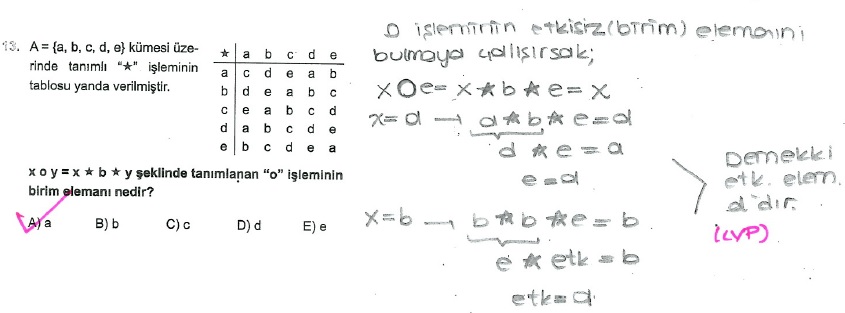 13. A = {a, b, c, d, e} kümesi üze-
rinde tanımlı "★" işleminin
tablosu yanda verilmiştir.
★ a b c d e
a c d e a b
b d e a b c
c e a b c d
d a b c d e
e b c d e a
x o y = x ★ b ★ y şeklinde tanımlanan "o" işleminin
birim elemanı nedir?
A) a B) b C) c D) d E) e
O işleminin etkisiz (birim) elemanını
bulmaya çalışırsak;
xOe = x ★ b ★ e = x
x = a → a ★ b ★ e = a
d ★ e = a
e = a
x = b → b ★ b ★ e = b
e ★ etk = b
etk = a
Demekki
etk. elem.
a'dır.
(CVP)